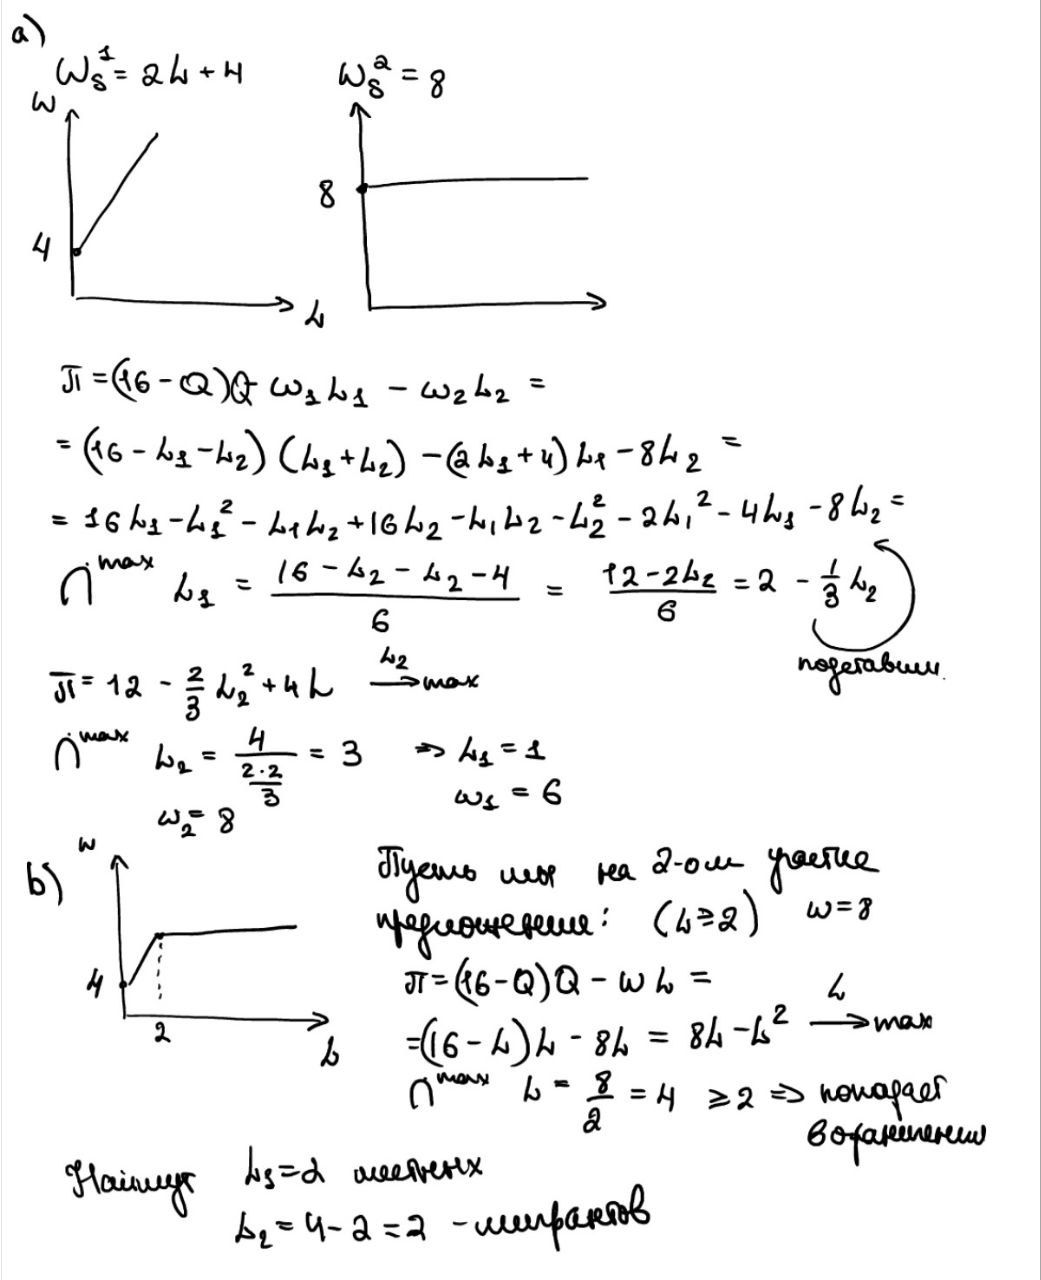 a)
W_S^1 = 2L + 4    W_S^2 = 8
W
8
4
L
π = (16 - Q)Q - w₁L₁ - w₂L₂ =
= (16 - L₁ - L₂) (L₁ + L₂) - (2L₁ + 4) L₁ - 8L₂ =
= 16L₁ - L₁² - L₁L₂ + 16L₂ - L₁L₂ - L₂² - 2L₁² - 4L₁ - 8L₂ =
∩ max L₁ = (16 - L₂ - L₂ - 4)/6 = (12 - 2L₂)/6 = 2 - 1/3 L₂
подставим
π = 12 - 2/3 L₂² + 4L → max
L₂
∩ max L₂ = 4/(2·2/3) = 3 ⇒ L₁ = 1
w₂ = 8    w₁ = 6
b)
w
4
2
L
Пусть мы на 2-ом участке
предложения: (L ≥ 2) w = 8
π = (16 - Q)Q - wL =
= (16 - L)L - 8L = 8L - L² → max
L
∩ max L = 8/2 = 4 ≥ 2 ⇒ попадает
в ограничения
Наймут L₁ = 2 местных
L₂ = 4 - 2 = 2 - мигрантов